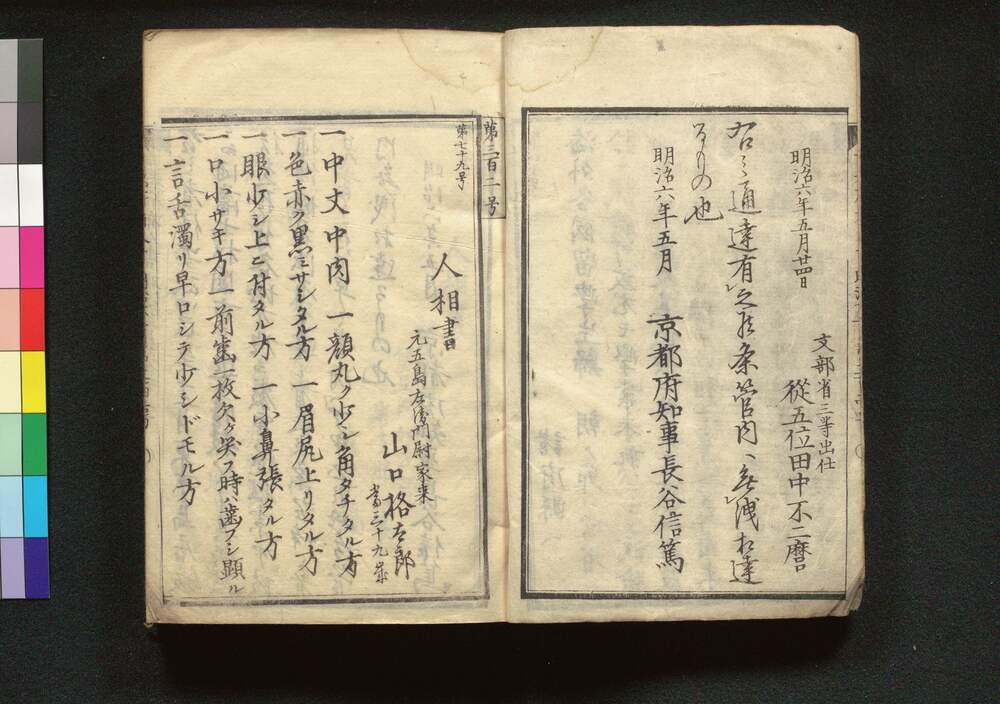 明治六年五月廿四日
文部省三等出仕
従五位田中不二麿
右之通達有之候条管内ヘ無洩相達
るもの也
明治六年五月
京都府知事長谷信篤
第三百二号
第七十九号
人相書
元五島左衛門尉家来
山口格太郎
当三十九歳
一中丈中肉 一顔丸ク少シ角タチタル方
一色赤ク黒ミサシタル方 一眉尻上リタル方
一眼少シ上ニ付タル方 一小鼻張タル方
一口小サキ方 一前歯一枚欠ケ笑フ時ハ歯ブシ顕ル
一言舌濁リ早口シテ少シドモル方